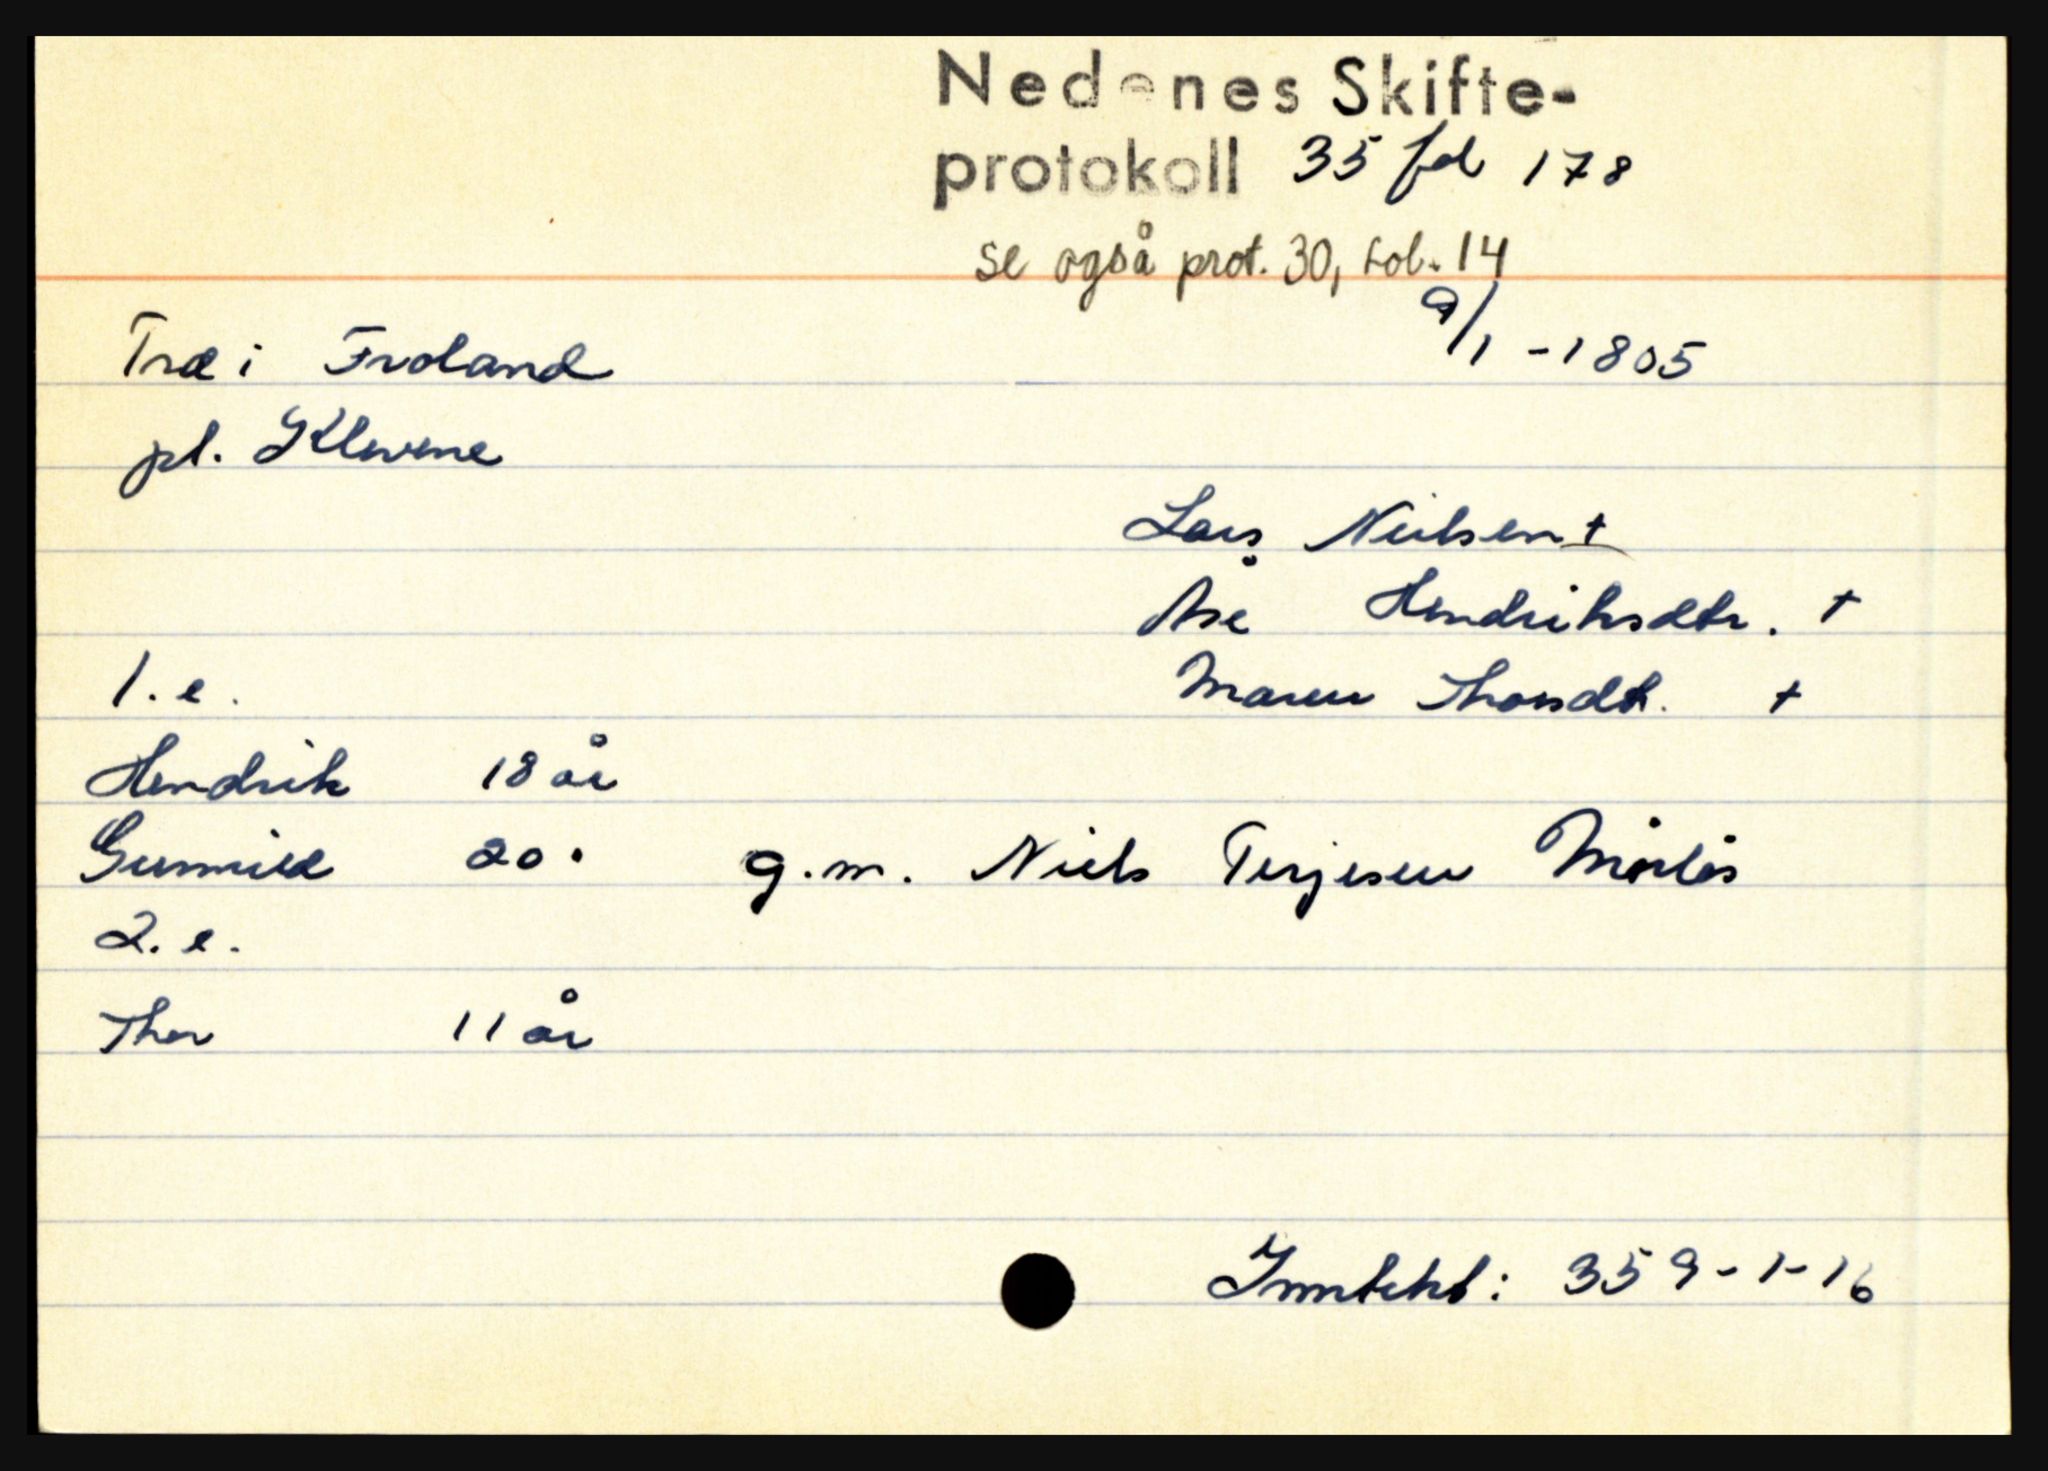 Nedenes Skifte-
protokoll 35 fol 178
se også prot. 30, fol. 14
Træ i Froland 9/1 -1805
pl. Klevene
Lars Nielsen +
Åse Hendriksdtr. +
1. e. Maren Thorsdtr. +
Hendrik 18 år
Gunnild 20 " g.m. Niels Terjesen
2. e.
Thor 11 år
Inntekt: 359-1-16